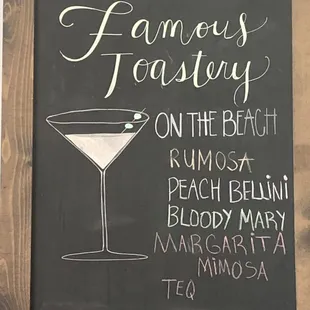 Famous
Toastery
ON THE BEACH
RUMOSA
PEACH BELLINI
BLOODY MARY
MARGARITA
MIMOSA
TEQ